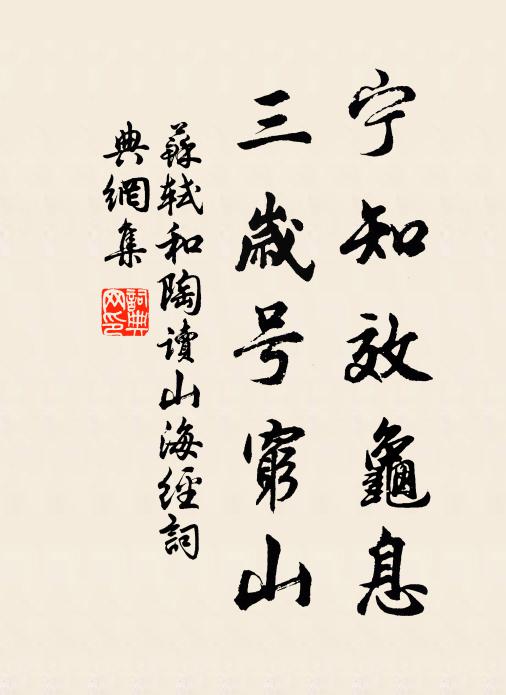 宁知效龜息
三歲号窮山
蘇軾和陶讀山海經詞
典網集
詞典网印